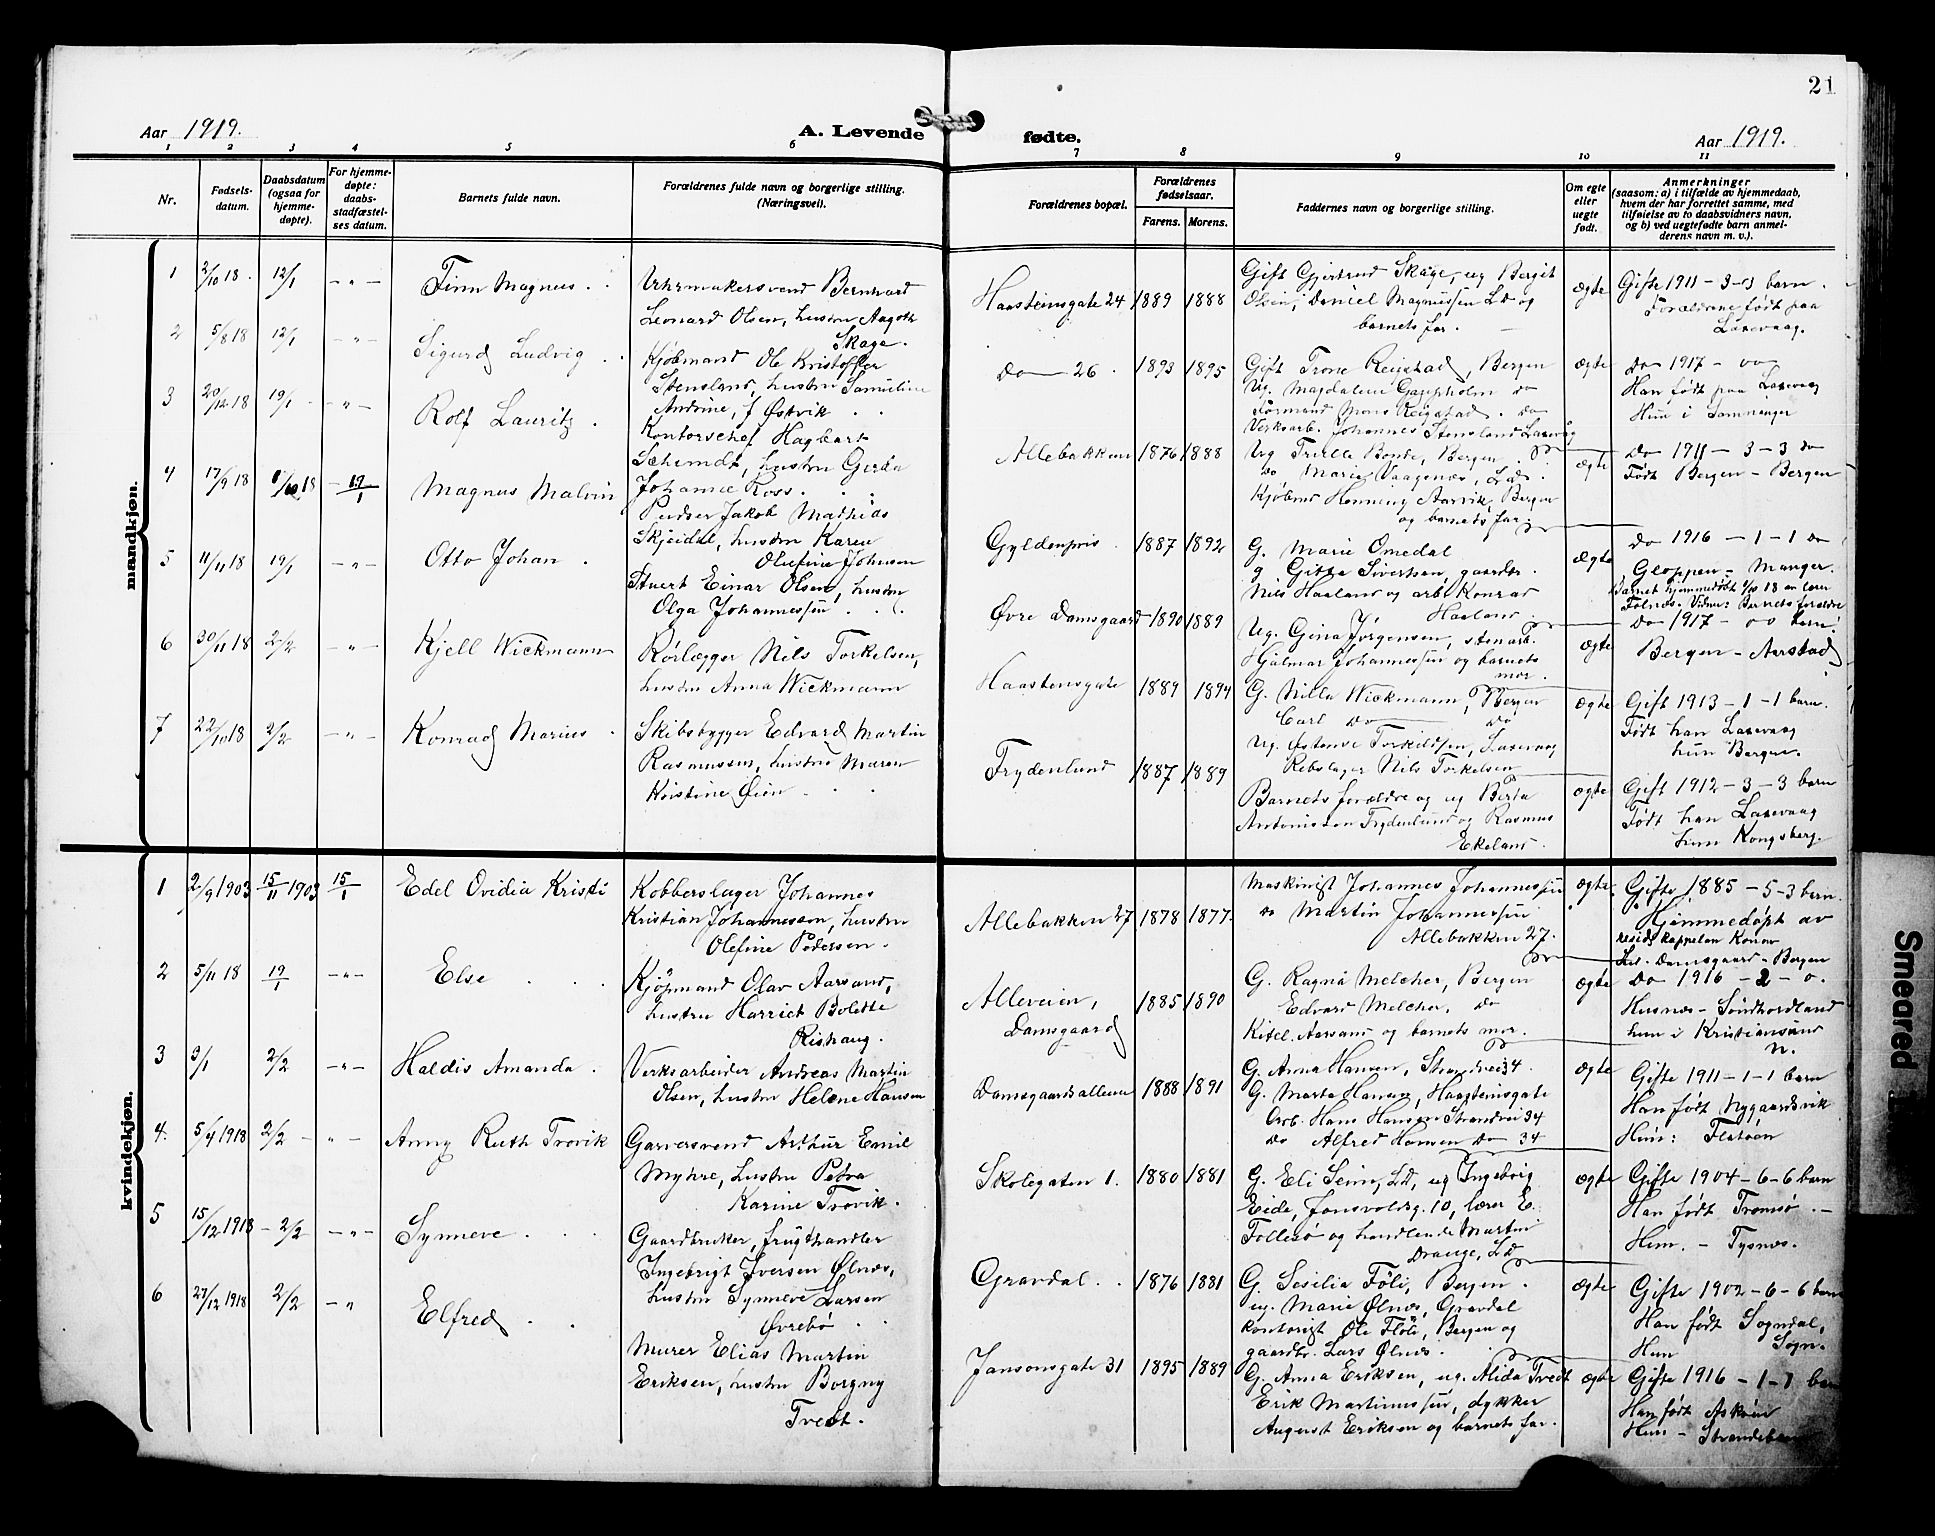 21
Aar 1919.
A. Levende fødte.
Aar 1919.
1 2 3 4 5 6 7 8 9 10 11
Nr.
Fødsels-
datum.
Daabsdatum
(ogsaa for
hjemme-
døpte).
For hjemme-
døpte:
daabs-
stadfæstel-
ses datum.
Barnets fulde navn.
Forældrenes fulde navn og borgerlige stilling.
(Næringsvei).
Forældrenes bopæl.
Forældrenes
fødselsaar.
Farens. Morens.
Faddernes navn og borgerlige stilling.
Om egte
eller
uegte
født.
Anmerkninger
(saasom: a) i tilfælde av hjemmedaab,
hvem der har forrettet samme, med
tilføielse av to daabsvidners navn,
og b) ved uegtefødte barn anmel-
derens navn m. v.).
mandkjøn.
1 2/10 18 12/1 - „ - Finn Magnus
Urhrmakersvend Bernhard
Leonard Olsen, hustru Aagoth
Skage.
Haasteinsgate 24 1889 1888
Gift Gjertrud Skage, ug Bergit
Olsen, Daniel Magnussen LD og
barnets far.
ægte
Gifte 1911 - 3-3 barn.
Forældrene født paa
Laxevaag.
2 5/8 18 12/1 - „ - Sigurd Ludvig
Kjøbmand Ole Kristoffer
Stensland, hustru Samuline
Andrine, f Østvik
Do 26. 1893 1895
Gift Trone Reigstad, Bergen
Ug. Magdalene Gappholm do
Tørmand Mons Reigstad. do
Verksarb. Johannes Stensland Laxevåg
ægte
Do 1917 - 00
Han født paa Laxevaag
Hun i Samnanger
3 20/12 18 19/1 - „ - Rolf Lauritz.
Kontorschef Hagbart
Schemdt, hustru Gerda
Johanne Ross.
Allebakken 1876 1888
Ug Trulle Bonde, Bergen
Do Marie Vaagenes, LD.
Kjøbmd Henning Aarvik, Bergen
og barnets far
ægte
Do 1911 - 3-3 do
Født Bergen - Bergen
4 17/9 18 1/10 18 19/1 Magnus Malvin
Pudser Jakob Mathias
Skjeidal, hustru Karen
Olufine Johnsen
Gyldenpris 1887 1892
G. Marie Omedal
g Gitta Sivertsen, gaardbr.
Nils Haaland og arb Konrad
Haaland
ægte
Do 1916 - 1-1 do
Gloppen - Manger.
Barnet hjemmedøbt 1/10 18 av lærer
Follesø. Vidner: Barnets forældre
5 11/11 18 19/1 - „ - Otto Johan
Stuert Einar Olsen, hustru
Olga Johannessen
Øvre Damsgaard 1890 1889
Ug. Gina Jørgensen, stenarb.
Hjalmar Johannessen og barnets
mor.
ægte
Do 1917 - 00 barn.
Bergen - Aarstad
6 30/11 18 2/2 - „ - Kjell Wickmann
Rørlægger Nils Torkelsen,
hustru Anna Wickmann
Haasteinsgate 1889 1894
G. Nilla Wickmann, Bergen
Carl Do Do
Ug. Østense Torkildsen, Laxevaag
Rebslager Nils Torkelsen
ægte
Gift 1913 - 1-1 barn.
Født han Laxevaag
hun Bergen.
7 22/10 18 2/2 - „ - Konrad Marius
Skibsbygger Edvard Martin
Rasmussen, hustru Maren
Kristine Øien
Frydenlund 1887 1889
Barnets forældre og ug Berta
Antonissen Frydenlund og Rasmus
Ekeland.
ægte
Gift 1912 - 3-3 barn
Født han Laxevaag
hun Kongsberg.
kvindekjøn.
1 2/9 1903 15/11 1903 15/1 Edel Ovidia Kristi
Kobberslager Johannes
Kristian Johannesson, hustru
Olefine Pedersen.
Allebakken 27 1878 1877.
Maskinist Johannes Johannessen
Do Martin Johannessen
Allebakken 27.
ægte.
Gifte 1885 - 5-3 barn.
Hjemmedøpt av
resid. kappelan Konow
Damsgaard - Bergen
2 5/11 18 19/1 - „ - Else
Kjøpmand Olav Aarsand,
hustru Harriet Bolette
Rishaug.
Alleveien,
Damsgaard 1885 1890
G. Ragna Melcher, Bergen
Edvard Melcher, do
Kitel Aarsand og barnets mor.
ægte
Do 1916 - 2 - 0.
Husnes - Søndhordland
hun i Kristiansund
N.
3 3/1 2/2 - „ - Haldis Amanda.
Verksarbeider Andreas Martin
Olsen, hustru Helene Hansen
Damsgaardsalleen 1888 1891
G. Anna Hansen, Strandvei 34.
G. Marta Hansen, Haasteinsgate
Arb. Hans Hansen Strandvei 34
Do Alfred Hansen Do 34
ægte
Gifte 1911 - 1-1 barn
Han født Nygaardsvik
Hun: Flatøen
4. 5/4 1918 2/2 - „ - Anny Ruth Trovik
Garversvend Arthur Emil
Myhre, hustru Petra
Karine Trovik.
Skolegaten 1. 1880 1881
G. Eli Seim, LD, ug Ingebrig
Eide, Jonsvoldsg. 10, lærer E.
Follesø og handlende Martin
Drange, LD
ægte
Gifte 1904 - 6-6 barn
Han født Tromsø. -
Hun. - Tysnes.
5 15/12 1918 - 2/2 - „ - Synneve
Gaardbruker, frugthandler
Ingebrigt Iversen Ølnes,
hustru Synneve Larsen
Øvrebø
Gravdal. 1876 1881
G. Sesilia Fløli, Bergen.
ug. Marie Ølnes, Gravdal
Kontorist Ole Fløli, Bergen og
gaardbr. Lars Ølnes.
ægte
Gifte 1902 - 6-6 barn
Han født Sogndal,
Hun Sogn.
6 27/12 1918 2/2 - „ Elfred
Murer Elias Martin
Eriksen, hustru Borgny
Tvedt.
Jansonsgate 31 1895 1889
G. Anna Eriksen, ug. Alida Tvedt
Erik Martinussen, dykker
August Eriksen og barnets far.
ægte
Gifte 1916 - 1-1 barn
Han født Askøen
Hun - Strandebarm
Smeared